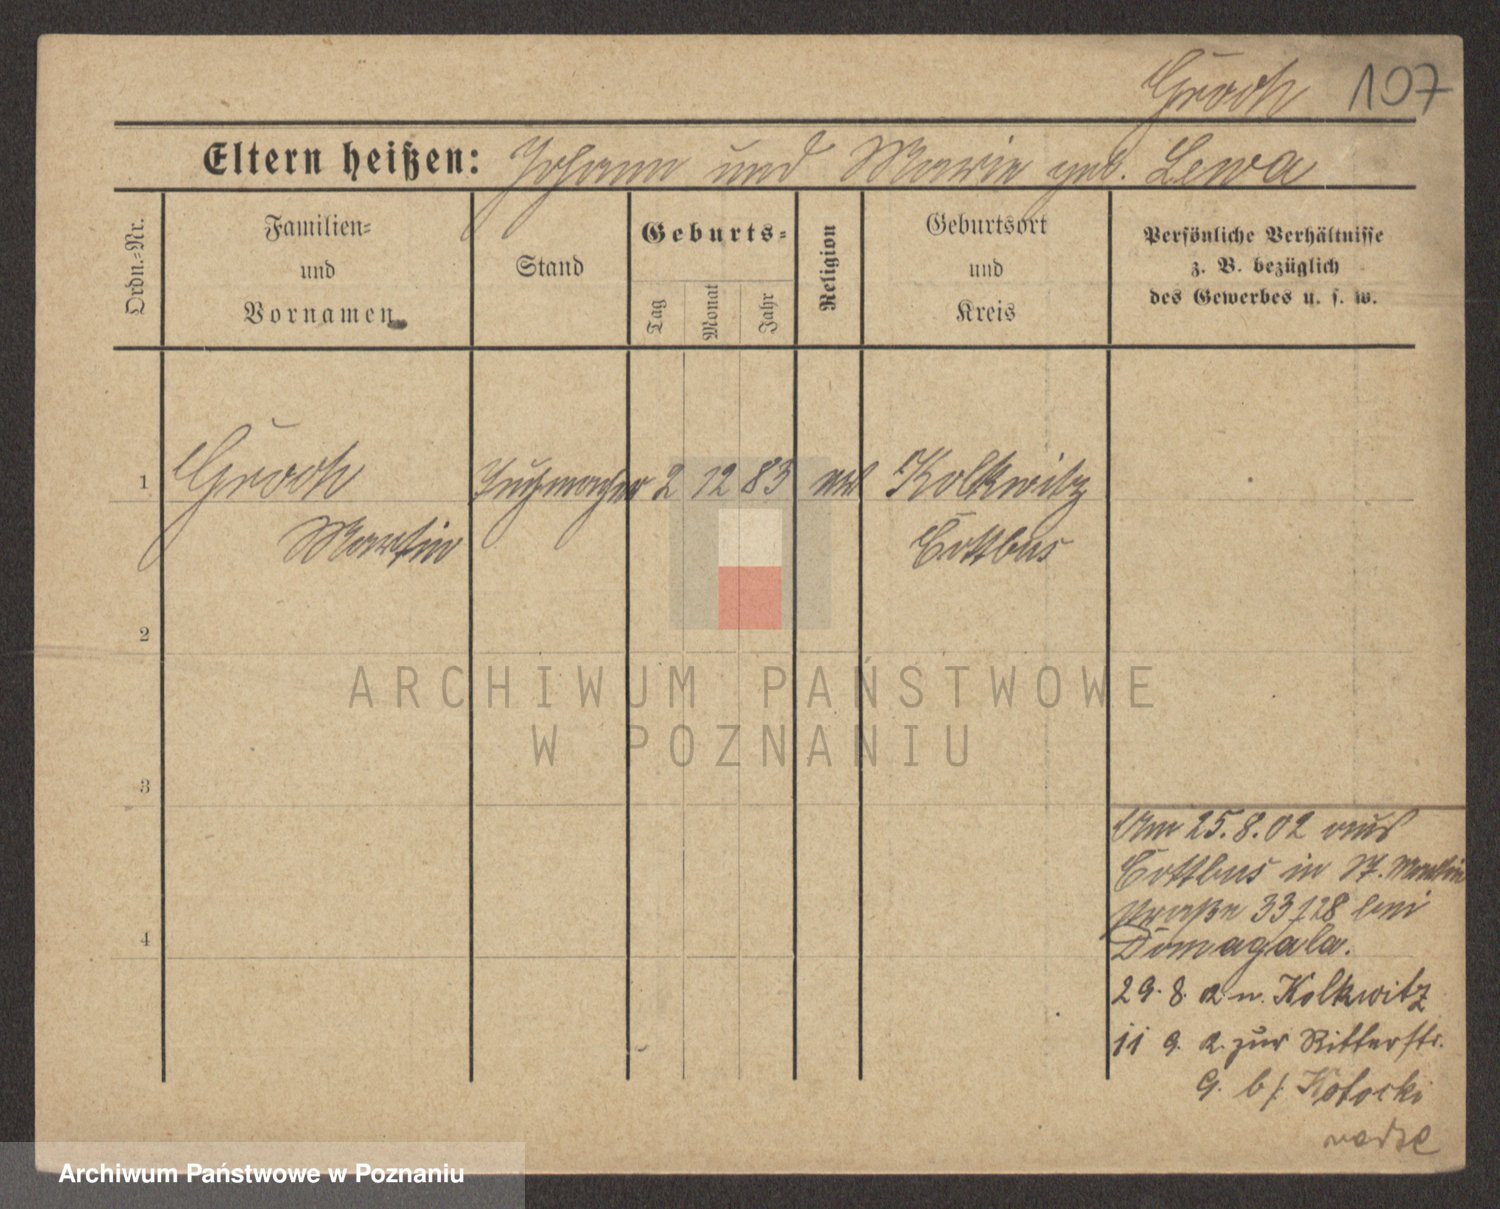 Groch 107
Eltern heißen: Johann und Marie geb. Lewa
Ordn.-Nr.
Familien-
und
Vornamen
Stand
Geburts-
Tag
Monat
Jahr
Religion
Geburtsort
und
Kreis
Persönliche Verhältnisse
z. B. bezüglich
des Gewerbes u. s. w.
1 Groch Tuchmacher 2 12 83 Kolkwitz
Martin Cottbus
2
3
4
Am 25.8.02 aus
Cottbus in St. Martin
straße 33 bei
Domagala.
29. 8. n. Kolkwitz
11 9. zur Ritterstr.
9. b/
ARCHIWUM PAŃSTWOWE
W POZNANIU
Archiwum Państwowe w Poznaniu